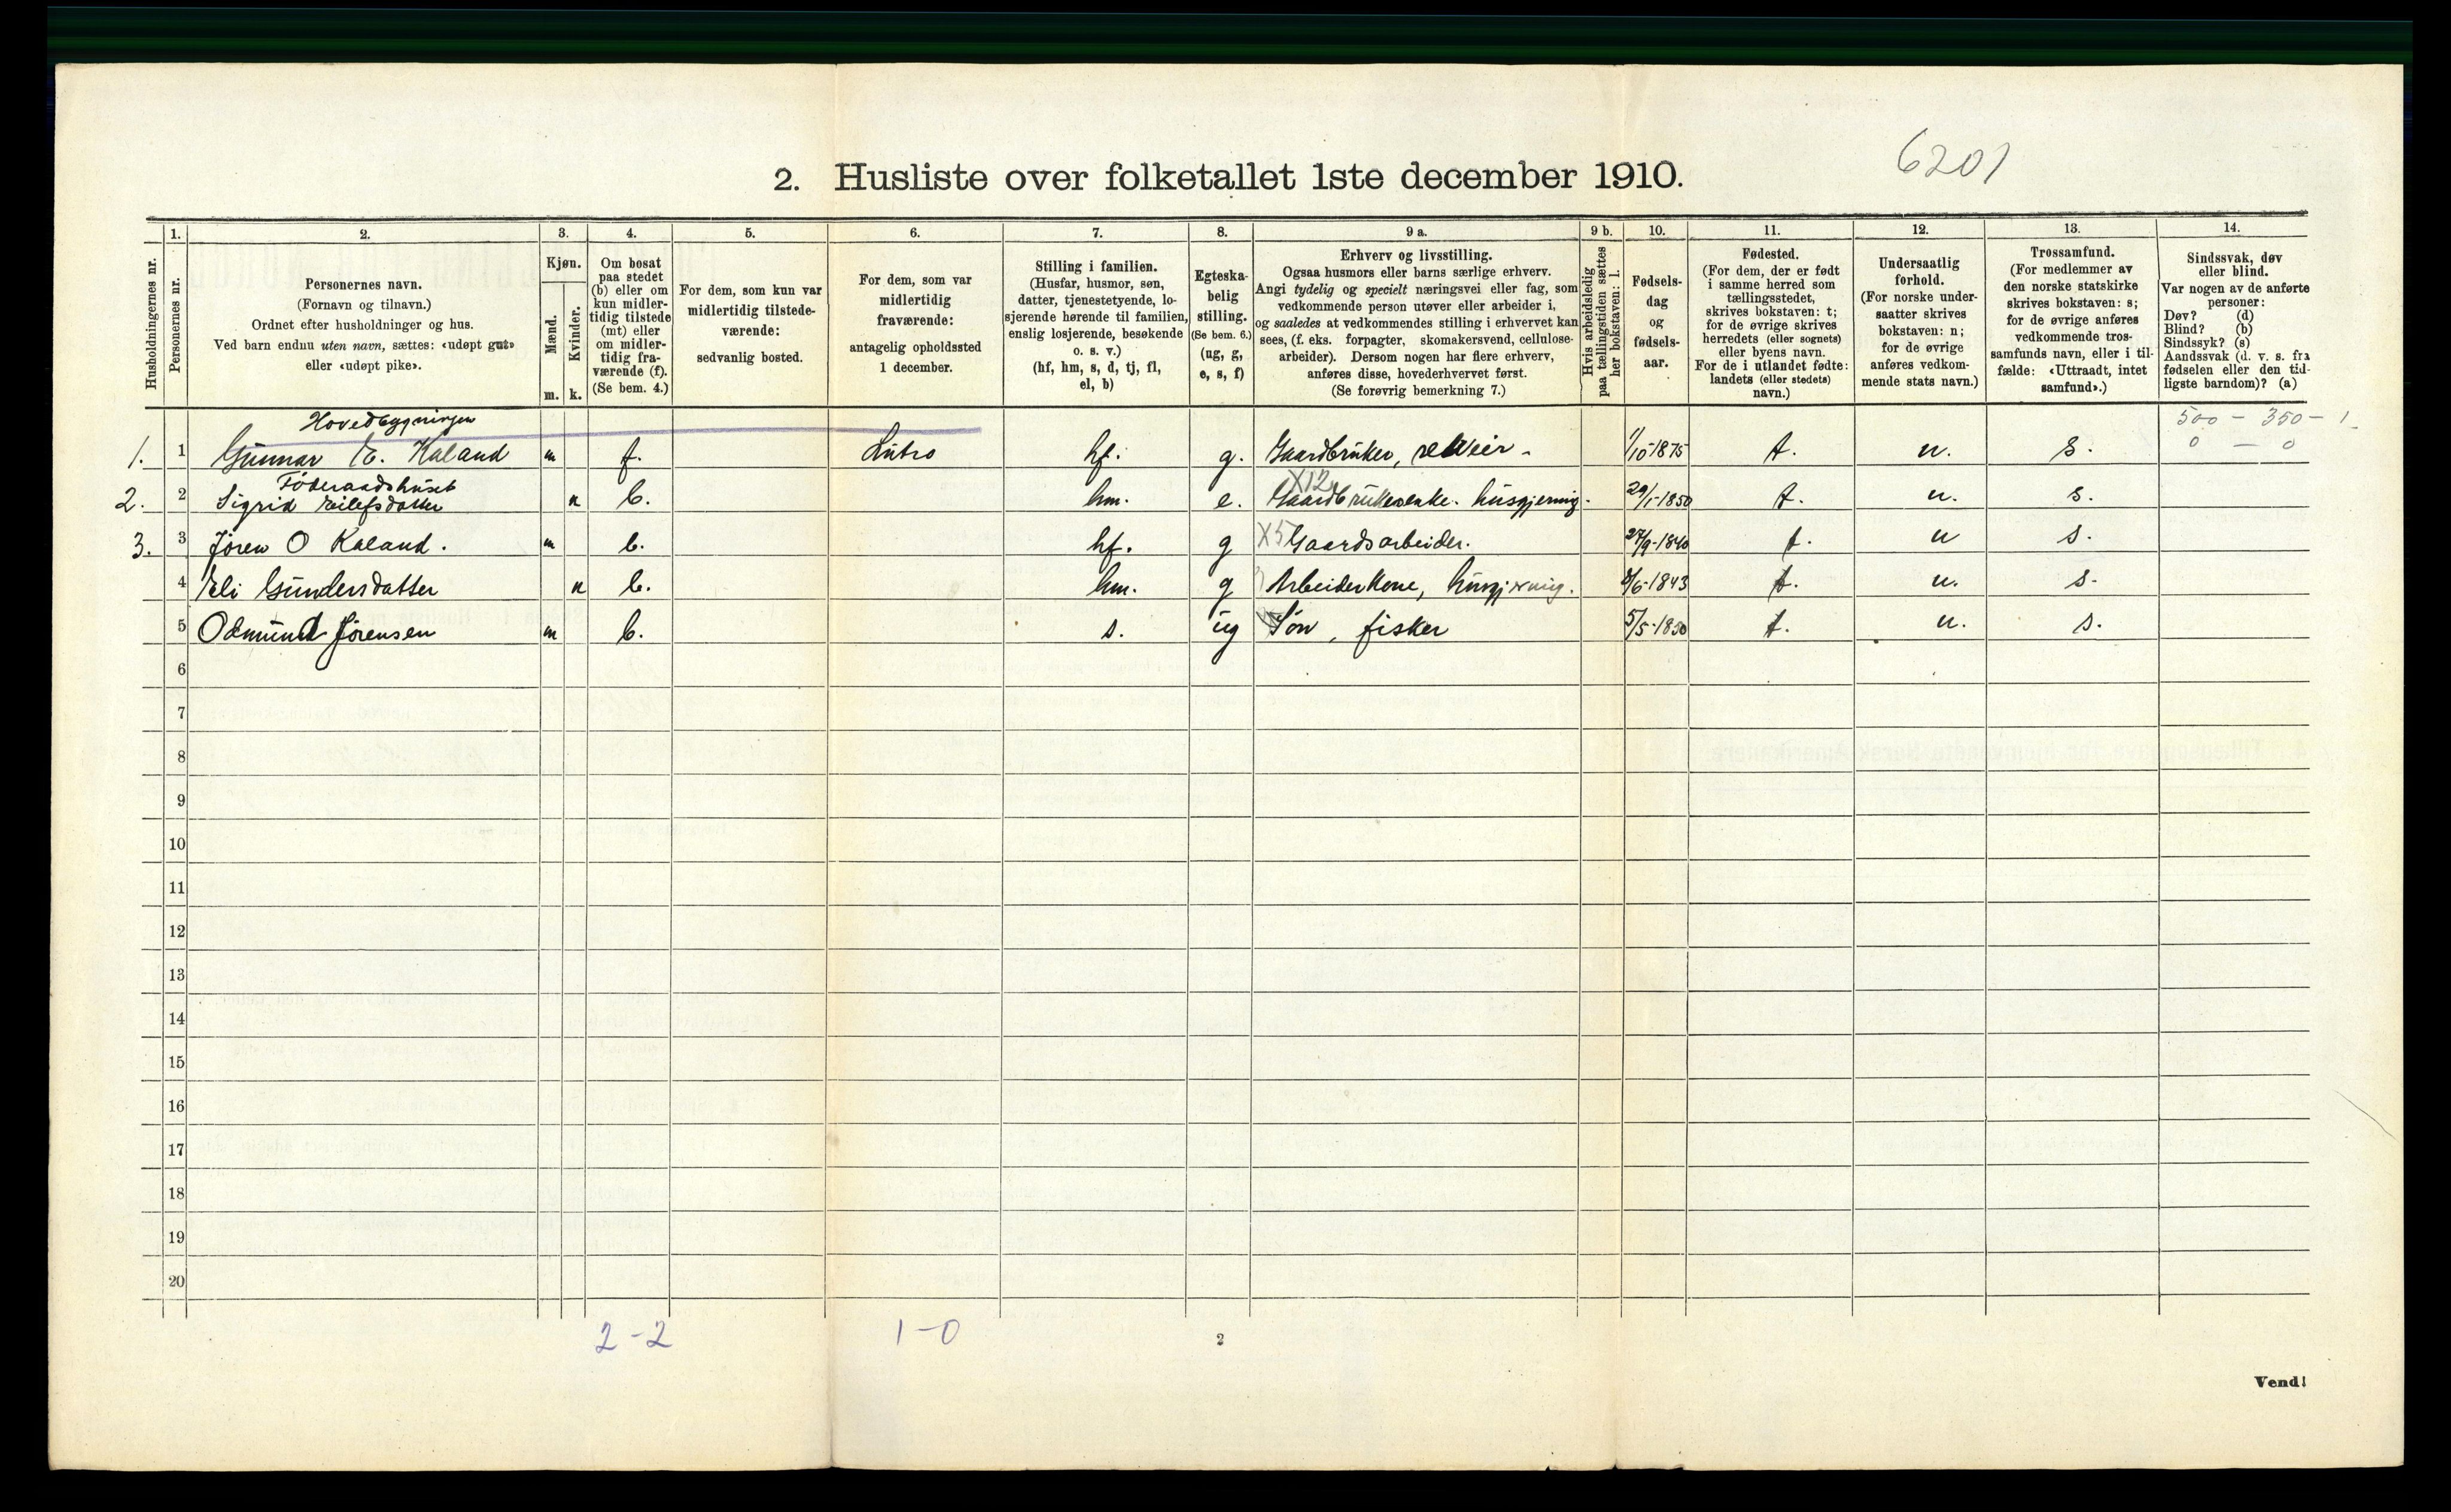 6201
2. Husliste over folketallet 1ste december 1910.
Husholdningernes nr.
1.
Personernes nr.
2.
Personernes navn.
(Fornavn og tilnavn.)
Ordnet efter husholdninger og hus.
Ved barn endnu uten navn, sættes: «udøpt gut»
eller «udøpt pike».
3.
Kjøn.
Mænd.
m.
Kvinder.
k.
4.
Om bosat
paa stedet
(b) eller om
kun midler-
tidig tilstede
(mt) eller
om midler-
tidig fra-
værende (f).
(Se bem. 4.)
5.
For dem, som kun var
midlertidig tilstede-
værende:
sedvanlig bosted.
6.
For dem, som var
midlertidig
fraværende:
antagelig opholdssted
1 december.
7.
Stilling i familien.
(Husfar, husmor, søn,
datter, tjenestetyende, lo-
sjerende hørende til familien,
enslig losjerende, besøkende
o. s. v.)
(hf, hm, s, d, tj, fl,
el, b)
8.
Egteska-
belig
stilling.
(Se bem. 6.)
(ug, g,
e, s, f)
9 a.
Erhverv og livsstilling.
Ogsaa husmors eller barns særlige erhverv.
Angi tydelig og specielt næringsvei eller fag, som
vedkommende person utøver eller arbeider i,
og saaledes at vedkommendes stilling i erhvervet kan
sees, (f. eks. forpagter, skomakersvend, cellulose-
arbeider). Dersom nogen har flere erhverv,
anføres disse, hovederhvervet først.
(Se forøvrig bemerkning 7.)
9 b.
Hvis arbeidsledig
paa tællingstiden sættes
her bokstaven: l.
10.
Fødsels-
dag
og
fødsels-
aar.
11.
Fødested.
(For dem, der er født
i samme herred som
tællingsstedet,
skrives bokstaven: t;
for de øvrige skrives
herredets (eller sognets)
eller byens navn.
For de i utlandet fødte:
landets (eller stedets)
navn.)
12.
Undersaatlig
forhold.
(For norske under-
saatter skrives
bokstaven: n;
for de øvrige
anføres vedkom-
mende stats navn.)
13.
Trossamfund.
(For medlemmer av
den norske statskirke
skrives bokstaven: s;
for de øvrige anføres
vedkommende tros-
samfunds navn, eller i til-
fælde: «Uttraadt, intet
samfund».)
14.
Sindssvak, døv
eller blind.
Var nogen av de anførte
personer:
Døv? (d)
Blind? (b)
Sindssyk? (s)
Aandssvak (d. v. s. fra
fødselen eller den tid-
ligste barndom)? (a)
Hovedbygningen
500 - 350 - 1
1. 1 Gunnar E. Kaland m f. hf. g. Gaardbruker, 1/10-1875 t. n. s. 0 - 0
Føderaadshuset
X12
2. 2 Sigrid Eilefsdatter k b. hm. e. Gaardbrukerenke. husgjerning. 29/1-1850 t. n. s.
3. 3 Jøren O Kaland. m b. hf. g X5 Gaardsarbeider. 27/9-1840 t. n s.
4 Eli Gundersdatter k b. hm. g Arbeiderkone, husgjerning. 8/6-1843 t. n. s.
5 Odmund Jørensen m b. s. ug Søn, fisker 5/5-1880 t. n. s.
6
7
8
9
10
11
12
13
14
15
16
17
18
19
20
2-2 1-0
2
Vend!